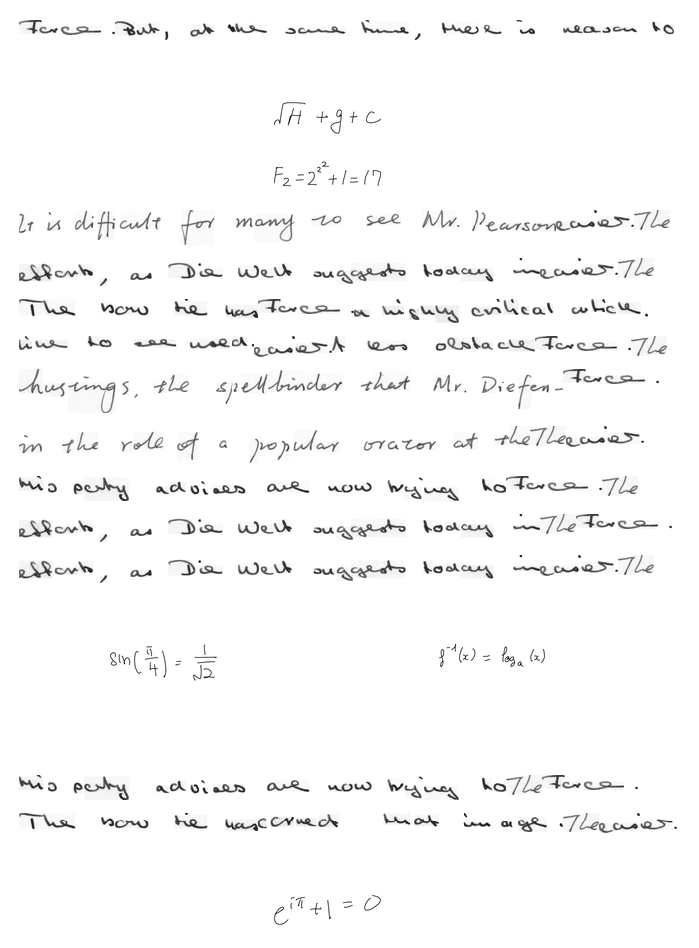 Force. But, at the same time, there is reason to
√H + g + c
F₂ = 2^2^2 + 1 = 17
It is difficult for many to see Mr. Pearson easier. The
efforts, as Die Welt suggests today in easier. The
The bow tie has Force a highly critical article.
line to see used. easier. A less obstacle Force. The
hustings, the spellbinder that Mr. Diefen- Force.
in the role of a popular orator at the The easier.
His party advisers are now trying to Force. The
efforts, as Die Welt suggests today in The Force.
efforts, as Die Welt suggests today in easier. The
sin(π/4) = 1/√2 f⁻¹(x) = logₐ(x)
His party advisers are now trying to The Force.
The bow tie has earned that image. The easier.
e^iπ + 1 = 0